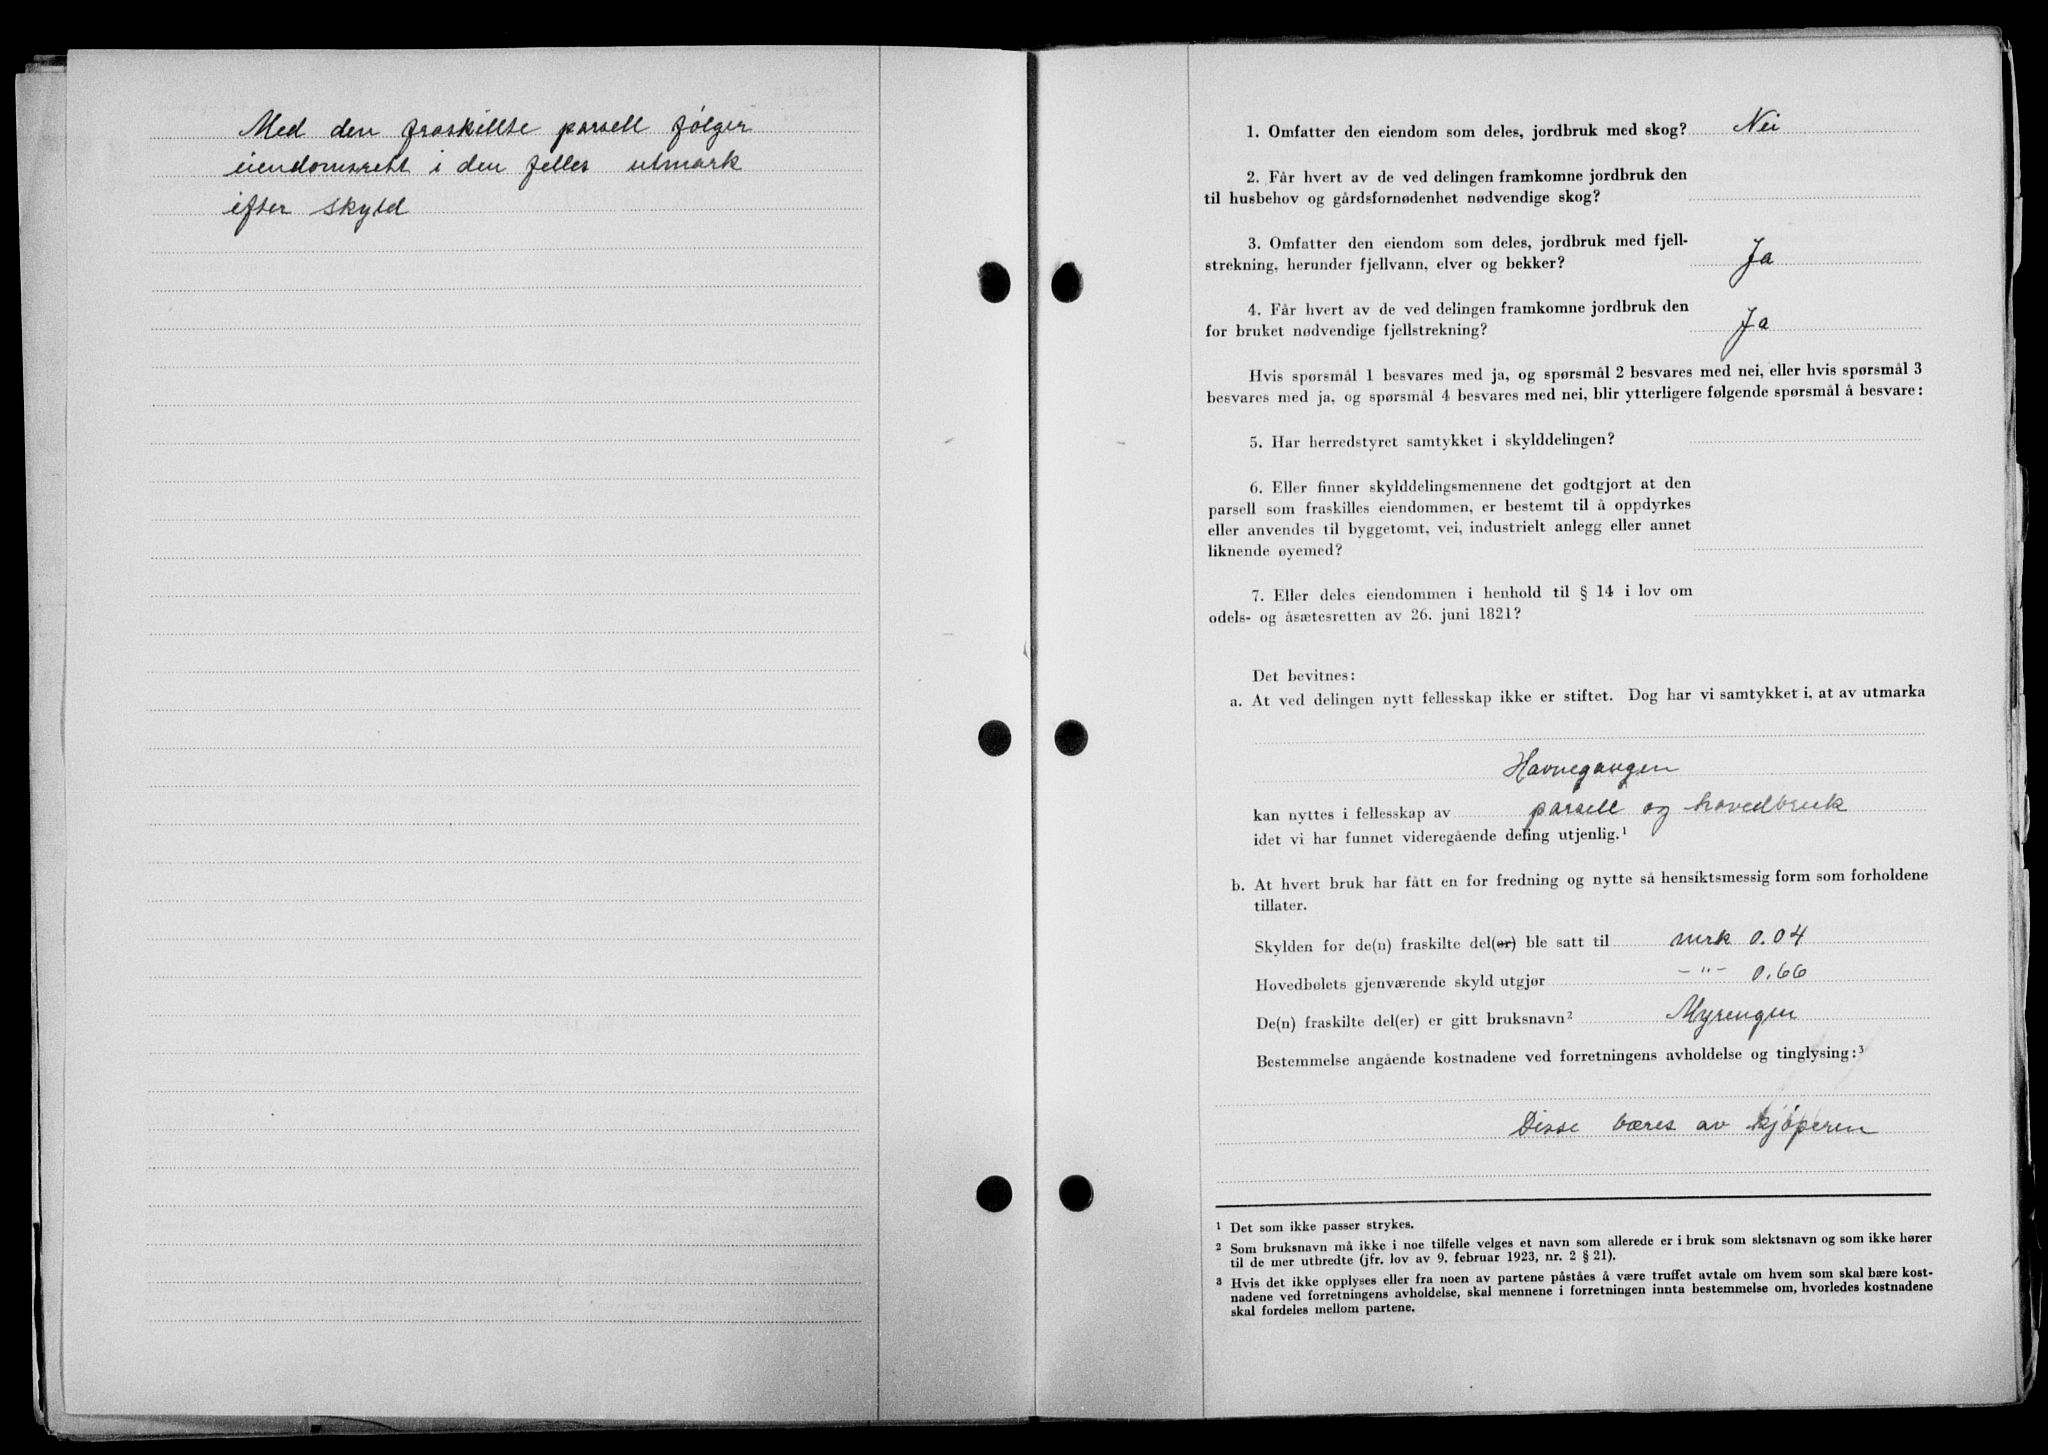 Med den fraskillte parsell følger
eiendomsrett i den felles utmark
efter skyld
1. Omfatter den eiendom som deles, jordbruk med skog? Nei
2. Får hvert av de ved delingen framkomne jordbruk den
til husbehov og gårdsfornødenhet nødvendige skog?
3. Omfatter den eiendom som deles, jordbruk med fjell-
strekning, herunder fjellvann, elver og bekker? Ja
4. Får hvert av de ved delingen framkomne jordbruk den
for bruket nødvendige fjellstrekning? Ja
Hvis spørsmål 1 besvares med ja, og spørsmål 2 besvares med nei, eller hvis spørsmål 3
besvares med ja, og spørsmål 4 besvares med nei, blir ytterligere følgende spørsmål å besvare:
5. Har herredstyret samtykket i skylddelingen?
6. Eller finner skylddelingsmennene det godtgjort at den
parsell som fraskilles eiendommen, er bestemt til å oppdyrkes
eller anvendes til byggetomt, vei, industrielt anlegg eller annet
liknende øyemed?
7. Eller deles eiendommen i henhold til § 14 i lov om
odels- og åsætesretten av 26. juni 1821?
Det bevitnes:
a. At ved delingen nytt fellesskap ikke er stiftet. Dog har vi samtykket i, at av utmarka
Havnegangen
kan nyttes i fellesskap av parsell og hovedbruk
idet vi har funnet videregående deling utjenlig.¹
b. At hvert bruk har fått en for fredning og nytte så hensiktsmessig form som forholdene
tillater.
Skylden for de(n) fraskilte del(er) ble satt til mrk 0.04
Hovedbølets gjenværende skyld utgjør -"- 0.66
De(n) fraskilte del(er) er gitt bruksnavn² Myrengen
Bestemmelse angående kostnadene ved forretningens avholdelse og tinglysing:³
Disse bæres av kjøperen
¹ Det som ikke passer strykes.
² Som bruksnavn må ikke i noe tilfelle velges et navn som allerede er i bruk som slektsnavn og som ikke hører
til de mer utbredte (jfr. lov av 9. februar 1923, nr. 2 § 21).
³ Hvis det ikke opplyses eller fra noen av partene påståes å være truffet avtale om hvem som skal bære kost-
nadene ved forretningens avholdelse, skal mennene i forretningen innta bestemmelse om, hvorledes kostnadene
skal fordeles mellom partene.